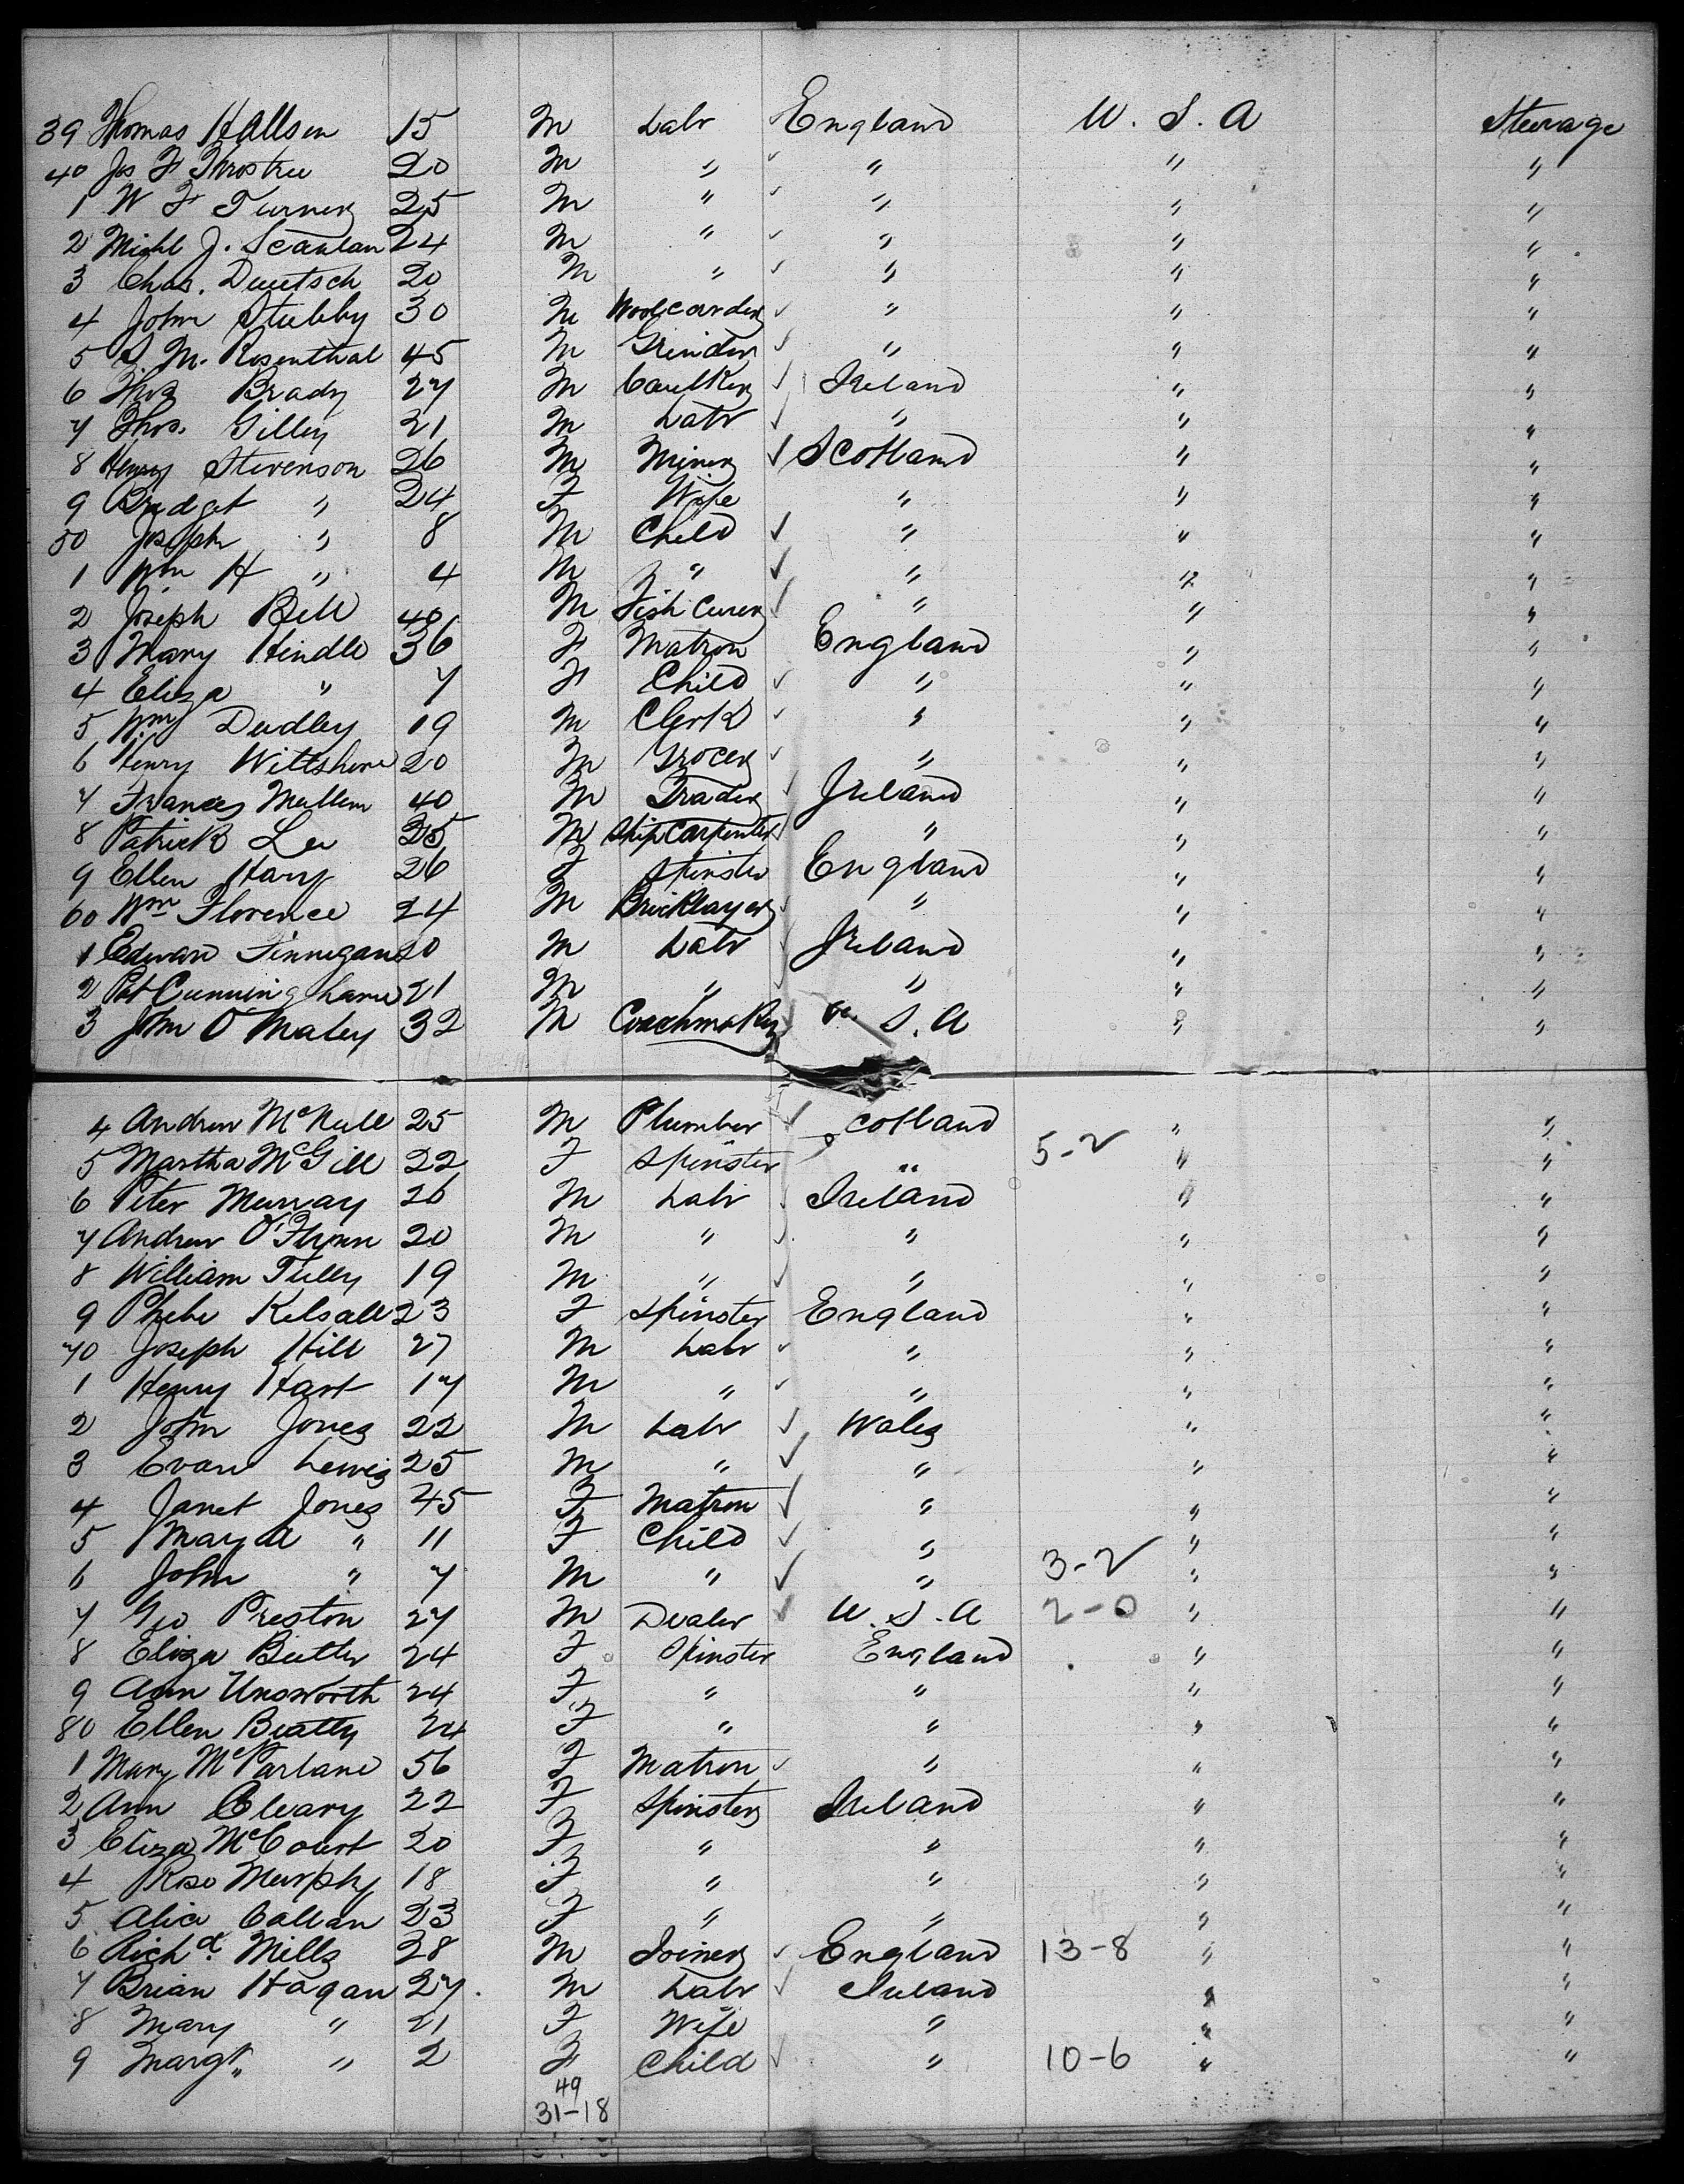 39 Thomas Hallsen 15 M Labr England U. S. A Steerage
40 Jos F Throstree 20 M " " " "
1 W F Turner 25 M " " " "
2 Michl J. Scanlan 24 M " " " "
3 Chas. Deutsch 20 M " " " "
4 John Stubby 30 M Woolcarder " " "
5 S. M. Rosenthal 45 M Grinder " " "
6 Thos Brady 27 M Caulker Ireland " "
7 Thos. Gilley 21 M Labr " " "
8 Henry Stevenson 26 M Miner Scotland " "
9 Bridget " 24 F Wife " " "
50 Joseph " 8 M Child " " "
1 Wm H " 4 M " " " "
2 Joseph Bell 40 M Fish Curer " " "
3 Mary Hindle 36 F Matron England " "
4 Eliza " 7 F Child " " "
5 Wm Dudley 19 M Clerk " " "
6 Henry Wiltshire 20 M Grocer " " "
7 Frances Mullen 40 M Trader Ireland " "
8 Patrick Lee 25 M Ship Carpenter " " "
9 Ellen Hary 26 F Spinster England " "
60 Wm Florence 24 M Bricklayer " " "
1 Edward Finnegan 20 M Labr Ireland " "
2 Pat Cunningham 21 M " " " "
3 John O'Maley 32 M Coachmaker U. S. A " "
4 Andrew McNeill 25 M Plumber Scotland " "
5 Martha McGill 22 F Spinster " 5-2 " "
6 Peter Murray 26 M Labr Ireland " "
7 Andrew O'Flynn 20 M " " " "
8 William Tully 19 M " " " "
9 Phebe Kelsall 23 F Spinster England " "
70 Joseph Hill 27 M Labr " " "
1 Henry Hart 17 M " " " "
2 John Jones 22 M Labr Wales " "
3 Evan Lewis 25 M " " " "
4 Janet Jones 45 F Matron " " "
5 Mary A " 11 F Child " " "
6 John " 7 M " " 3-2 " "
7 Geo Preston 27 M Dealer U. S. A 2-0 " "
8 Eliza Butler 24 F Spinster England " "
9 Ann Unsworth 24 F " " " "
80 Ellen Beatty 24 F " " " "
1 Mary McParland 56 F Matron " " "
2 Ann Cleary 22 F Spinster Ireland " "
3 Eliza McCourt 20 F " " " "
4 Rose Murphy 18 F " " " "
5 Alice Callan 23 F " " " "
6 Richd Mills 28 M Joiner England 13-8 " "
7 Brian Hagan 27. M Labr Ireland " "
8 Mary " 21 F Wife " " "
9 Margt " 2 F Child " 10-6 " "
49
31-18